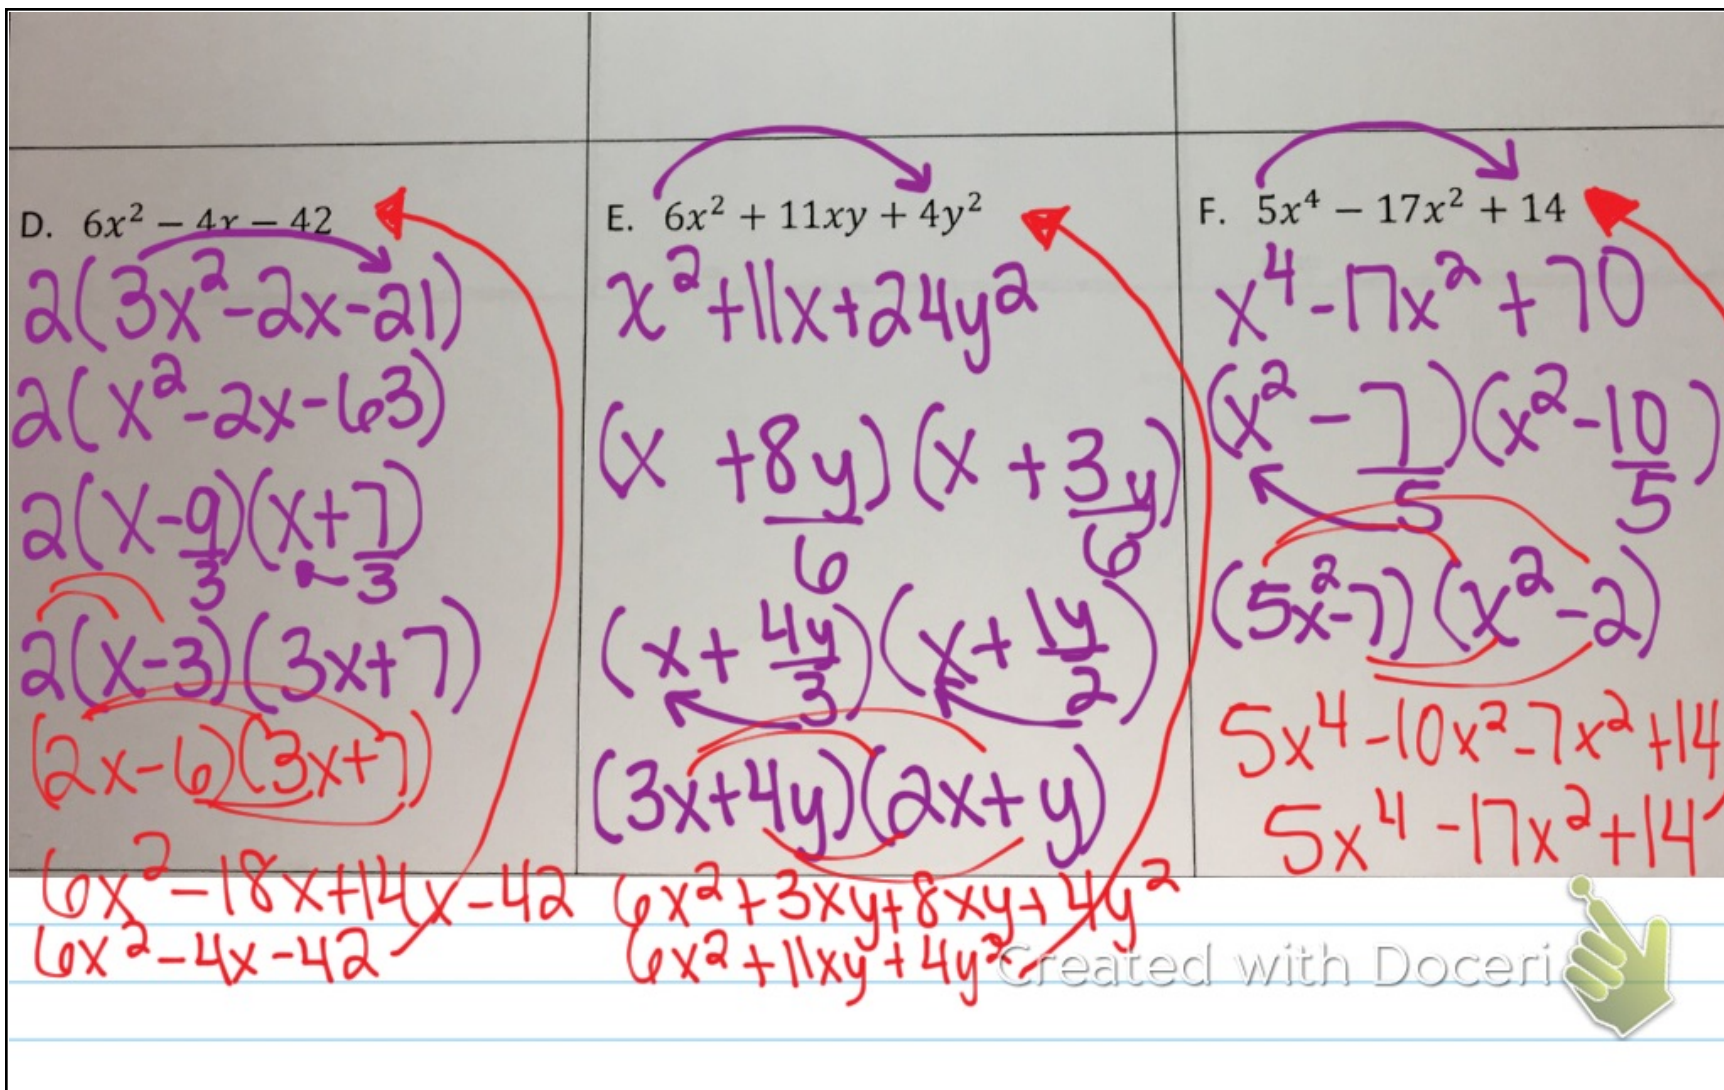 D. 6x² − 4x − 42
2(3x²-2x-21)
2(x²-2x-63)
2(x-9/3)(x+7/3)
2(x-3)(3x+7)
(2x-6)(3x+7)
6x²-18x+14x-42
6x²-4x-42
E. 6x² + 11xy + 4y²
x²+11x+24y²
(x +8y/6)(x +3y/6)
(x+4y/3)(x+1y/2)
(3x+4y)(2x+y)
6x²+3xy+8xy+4y²
6x²+11xy+4y²
F. 5x⁴ − 17x² + 14
x⁴-17x²+70
(x²-7/5)(x²-10/5)
(5x²-7)(x²-2)
5x⁴-10x²-7x²+14
5x⁴-17x²+14
Created with Doceri